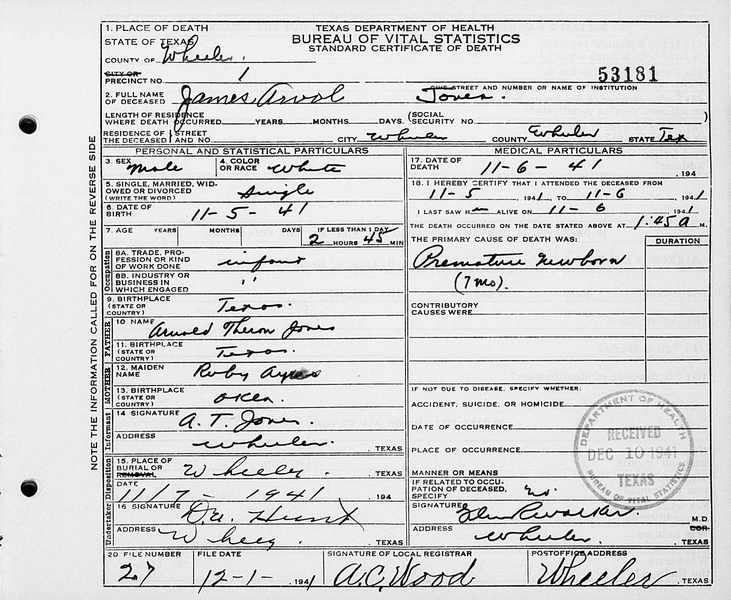 NOTE THE INFORMATION CALLED FOR ON THE REVERSE SIDE
TEXAS DEPARTMENT OF HEALTH
BUREAU OF VITAL STATISTICS
STANDARD CERTIFICATE OF DEATH
1. PLACE OF DEATH
STATE OF TEXAS
COUNTY OF Wheeler.
CITY OR
PRECINCT NO. 1
53181
GIVE STREET AND NUMBER OR NAME OF INSTITUTION
2. FULL NAME OF DECEASED James Arvol Jones.
LENGTH OF RESIDENCE WHERE DEATH OCCURRED YEARS MONTHS DAYS. (SOCIAL SECURITY NO.
RESIDENCE OF THE DECEASED (STREET AND NO. CITY Wheeler COUNTY Wheeler STATE Tex
PERSONAL AND STATISTICAL PARTICULARS
3. SEX Male
4. COLOR OR RACE White
5. SINGLE, MARRIED, WIDOWED OR DIVORCED (WRITE THE WORD) Single
6. DATE OF BIRTH 11-5-41
7. AGE YEARS MONTHS DAYS IF LESS THAN 1 DAY
2 HOURS 45 MIN
Occupation
8A. TRADE, PROFESSION OR KIND OF WORK DONE infant
8B. INDUSTRY OR BUSINESS IN WHICH ENGAGED "
9. BIRTHPLACE (STATE OR COUNTRY) Texas.
FATHER
10 NAME Arnold Theron Jones
11. BIRTHPLACE (STATE OR COUNTRY) Texas.
MOTHER
12. MAIDEN NAME Ruby Ayres
13. BIRTHPLACE (STATE OR COUNTRY) Okla.
Informant
14 SIGNATURE A. T. Jones.
ADDRESS Wheeler. , TEXAS
Disposition
15. PLACE OF BURIAL OR REMOVAL Wheeler , TEXAS
DATE 11/7-1941 , 194
Undertaker
16 SIGNATURE Hunt
ADDRESS Wheeler , TEXAS
MEDICAL PARTICULARS
17. DATE OF DEATH 11-6-41 , 194
18. I HEREBY CERTIFY THAT I ATTENDED THE DECEASED FROM
11-5 , 1941 TO 11-6 , 1941
I LAST SAW H ALIVE ON 11-6 1941
THE DEATH OCCURRED ON THE DATE STATED ABOVE AT 1:45 a M.
THE PRIMARY CAUSE OF DEATH WAS: DURATION
Premature Newborn
(7 mo).
CONTRIBUTORY CAUSES WERE
IF NOT DUE TO DISEASE, SPECIFY WHETHER:
ACCIDENT, SUICIDE, OR HOMICIDE
DATE OF OCCURRENCE
PLACE OF OCCURRENCE
MANNER OR MEANS
IF RELATED TO OCCUPATION OF DECEASED, SPECIFY no
SIGNATURE Walker. M.D.
ADDRESS Wheeler. , TEXAS
DEPARTMENT OF HEALTH
RECEIVED
DEC 10 1941
TEXAS
BUREAU OF VITAL STATISTICS
20 FILE NUMBER 27
FILE DATE 12-1- , 1941
SIGNATURE OF LOCAL REGISTRAR A.C. Wood
POSTOFFICE ADDRESS Wheeler , TEXAS